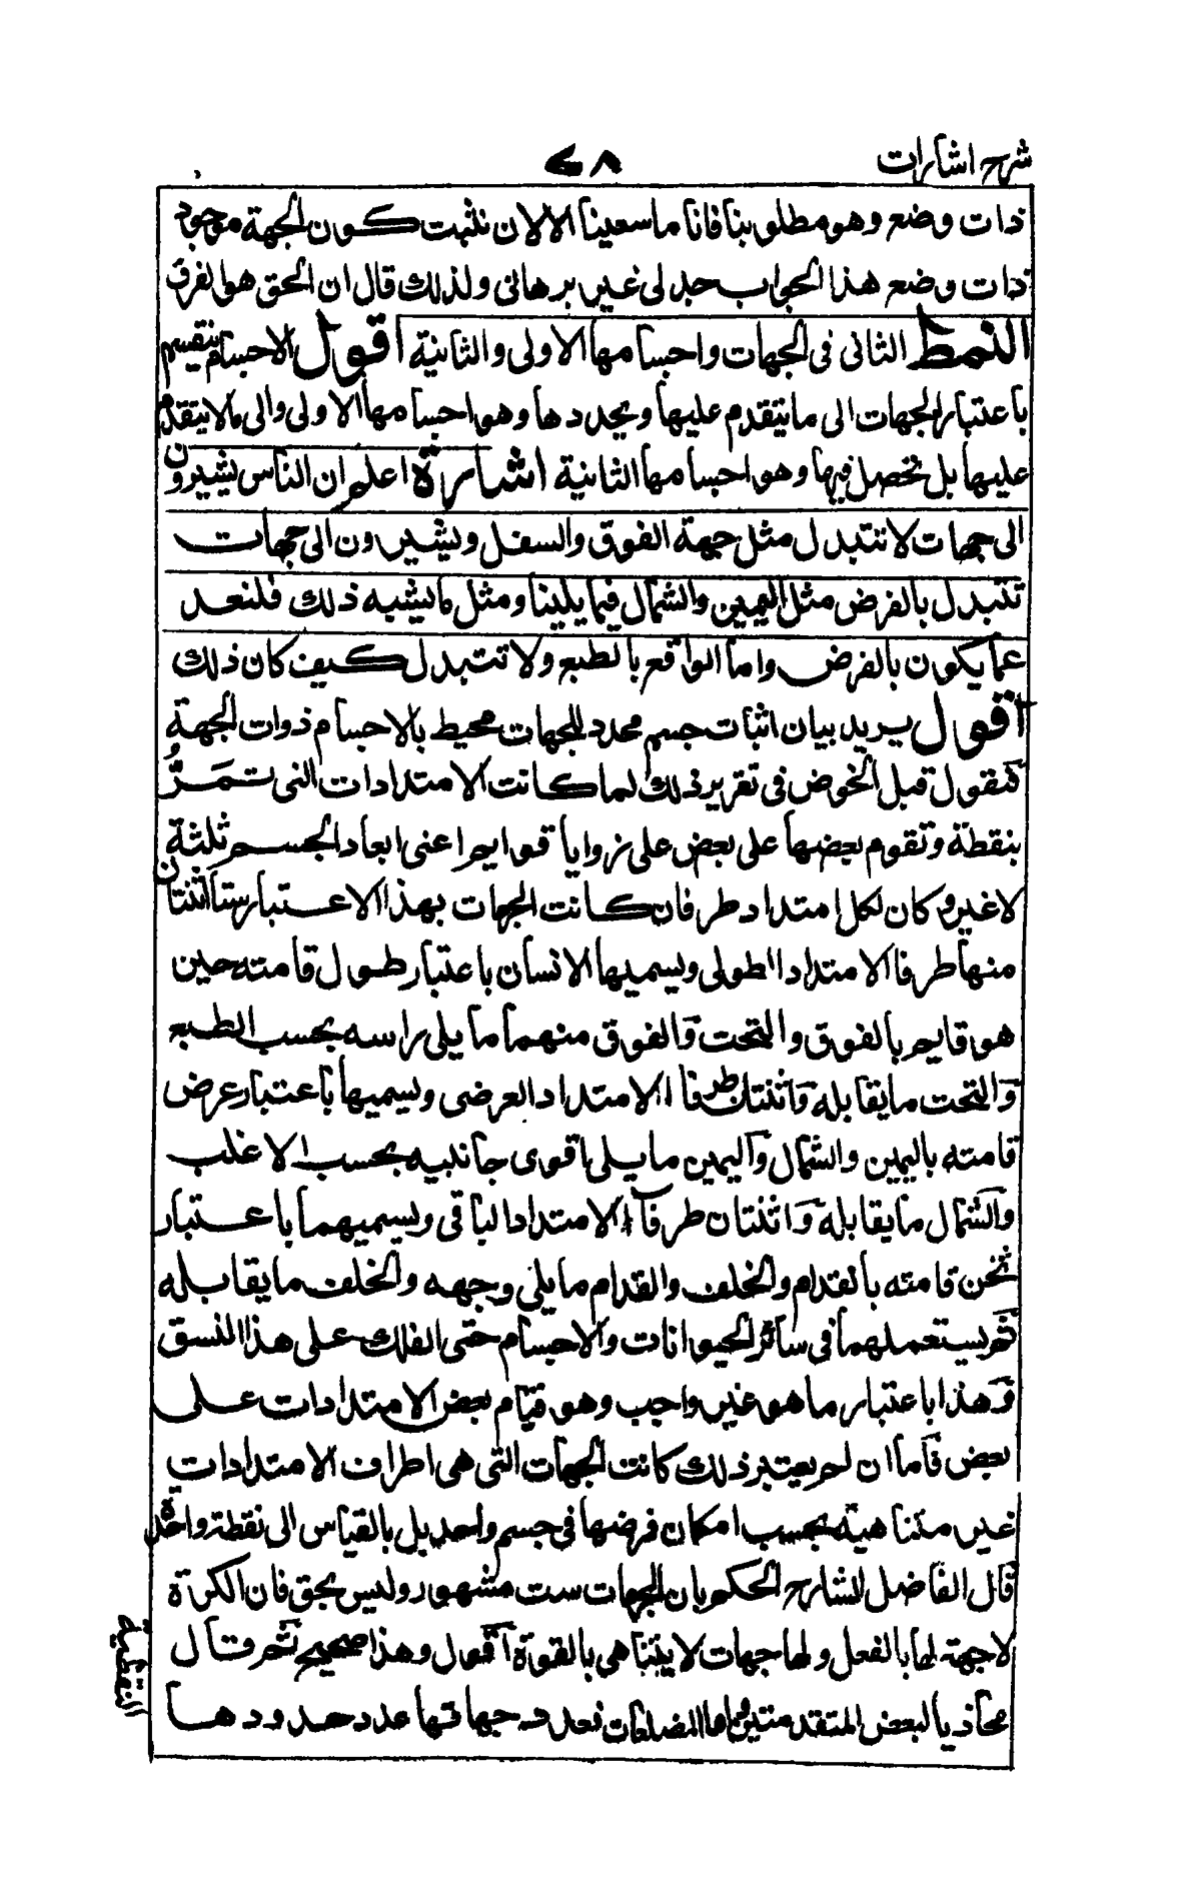 شرح اشارات ٧٨
ذات وضع وهو مطلوبنا فانا ما سعينا الا لان نثبت كون الجهة موجود
ذات وضع هذا الجواب جدلى غير برهانى ولذلك قال ان الحق هو الفرق
النمط الثانى فى الجهات واجسامها الاولى والثانية اقول الاجسام ينقسم
باعتبار الجهات الى ما يتقدم عليها ويحددها وهو اجسامها الاولى والى ما لا يتقدم
عليها بل يحصل فيها وهو اجسامها الثانية اشارة اعلم ان الناس يشيرون
الى جهات لا تتبدل مثل جهة الفوق والسفل ويشيرون الى جهات
تتبدل بالفرض مثل اليمين والشمال فيما يلينا ومثل ما يشبه ذلك فلنعد
عما يكون بالفرض واما الواقع بالطبع ولا تتبدل كيف كان ذلك
اقول يريد بيان اثبات جسم محدد للجهات محيط بالاجسام ذوات الجهة
فنقول قبل الخوض فى تقرير ذلك لما كانت الامتدادات التى تمرّ
بنقطة وتقوم بعضها على بعض على زوايا قوايم اعنى ابعاد الجسم ثلثة
لا غير وكان لكل امتداد طرفان كانت الجهات بهذا الاعتبار ستا اثنتان
منها طرفا الامتداد الطولى ويسميها الانسان باعتبار طول قامته حين
هو قايم بالفوق والتحت والفوق منهما ما يلى راسه بحسب الطبع
والتحت ما يقابله واثنتان طرفا الامتداد العرضى ويسميها باعتبار عرض
قامته باليمين والشمال واليمين ما يلى اقوى جانبيه بحسب الاغلب
والشمال ما يقابله واثنتان طرفا الامتداد الباقى ويسميهما باعتبار
ثخن قامته بالقدام والخلف والقدام ما يلى وجهه والخلف ما يقابله
ثم يستعملهما فى سائر الحيوانات والاجسام حتى الفلك على هذا النسق
وهذا باعتبار ما هو غير واجب وهو قيام بعض الامتدادات على
بعض فاما ان لم يعتبر ذلك كانت الجهات التى هى اطراف الامتدادات
غير متناهية بحسب امكان فرضها فى جسم واحد بل بالقياس الى نقطة واحدة
قال الفاضل الشارح الحكم بان الجهات ست مشهور وليس بحق فان الكرة
لا جهة لها بالفعل ولها جهات لا يتناهى بالقوة اقول وهذا صحيح ثم قال
محاذيا لبعض المتقدمين واما المضلعات فعدد جهاتها عدد حدودها
النقطية